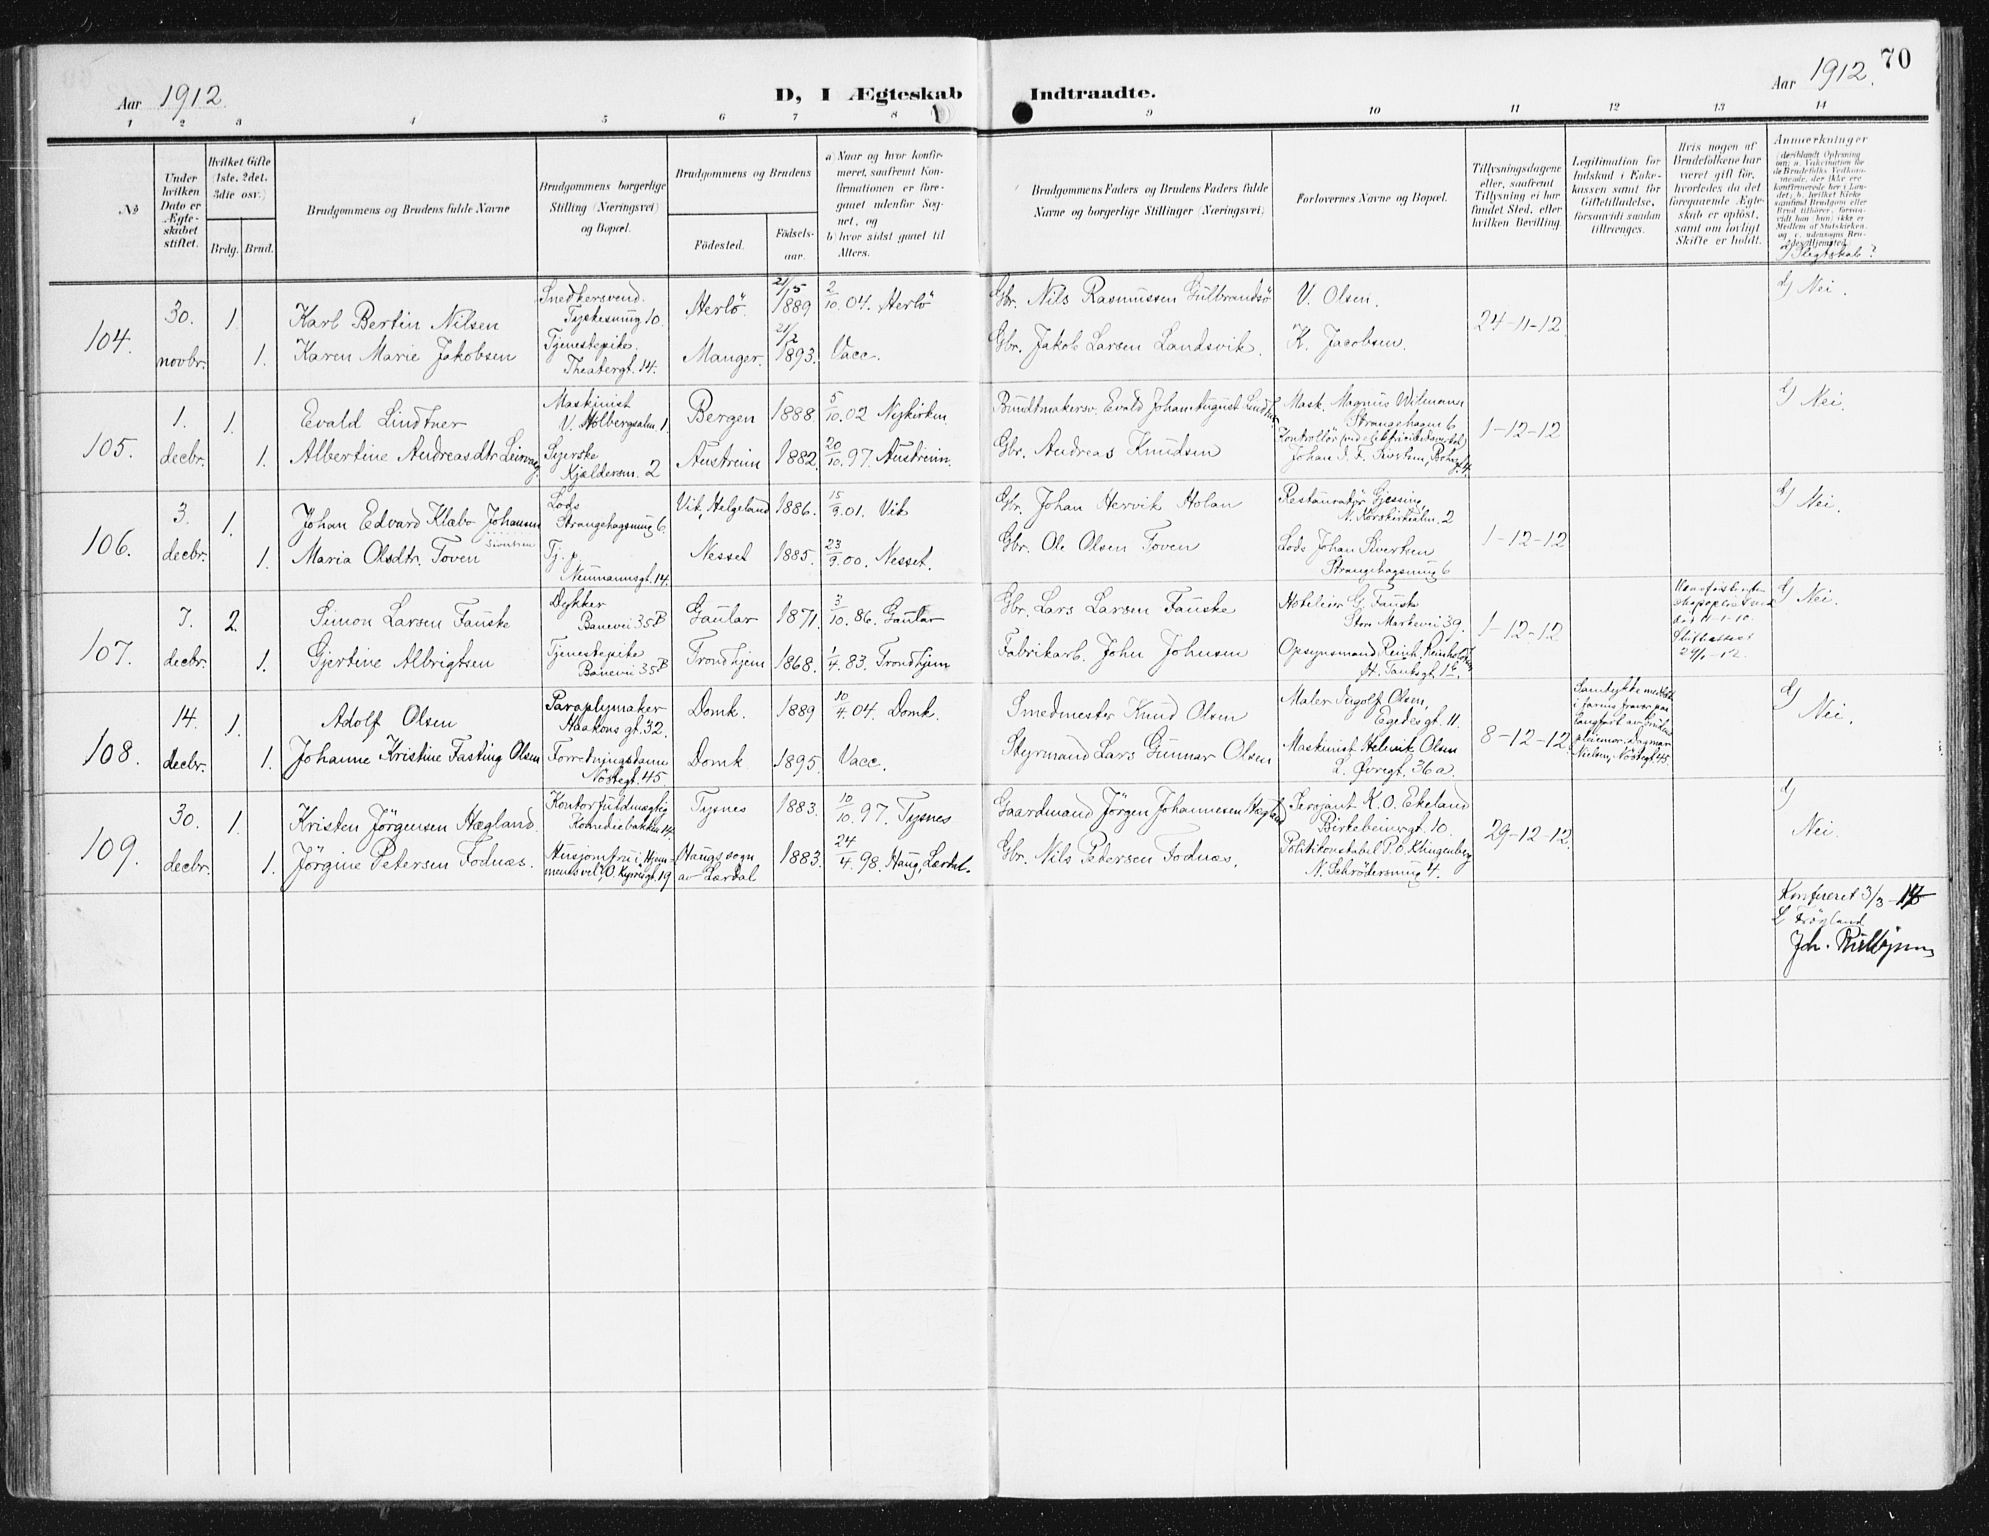 70
Aar 1912.
D, I Ægteskab Indtraadte.
Aar 1912.
1 2 3 4 5 6 7 8 9 10 11 12 13 14
No
Under hvilken Dato er Ægteskabet stiftet.
Hvilket Gifte (1ste, 2det, 3die osv.)
Brdg. Brud.
Brudgommens og Brudens fulde Navne
Brudgommens borgerlige Stilling (Næringsvei) og Bopæl.
Brudgommens og Brudens
Födested.
Födselsaar.
a) Naar og hvor konfirmeret, saafremt Konfirmationen er foregaaet udenfor Sognet, og
b) hvor sidst gaaet til Alters.
Brudgommens Faders og Brudens Faders fulde Navne og borgerlige Stillinger (Næringsvei)
Forlovernes Navne og Bopæl.
Tillysningsdagene eller, saafremt Tillysning ei har fundet Sted, efter hvilken Bevilling.
Legitimation for Indskud i Enkekassen samt for Giftetilladelse, forsaavidt saadan tiltrænges.
Hvis nogen af Brudefolkene har været gift før, hvorledes da det foregaaende Ægteskab er opløst, samt om lovligt Skifte er holdt.
Anmerkninger
d) Slegtskab?
104.
30. novbr.
1.
Karl Bertin Nilsen
Snedkersvend.
Tyskesmug 10.
Herlö
21/5 1889
2/10 04. Herlö
Gbr. Nils Rasmussen Gulbrandsö
V. Olsen.
24-11-12
d) Nei.
1.
Karen Marie Jakobsen
Tjenestepike.
Theatergt. 14.
Manger.
21/2 1893.
Vacc.
Gbr. Jakob Larsen Landsvik.
K. Jacobsen.
105.
1. decbr.
1.
Evald Lindtner
Maskinist
V. Holbergsalm. 1
Bergen
1888.
5/10 02 Nykirken
Bundtmakersv. Evald Johan August Lindtner
Mask. Magnus Wilmann
Strangehagen 6
1-12-12
d) Nei.
1.
Albertine Andreasdtr. Leirvaag.
Syerske
Kjeldersm. 2
Austreim
1882.
20/10 97. Austreim.
Gbr. Andreas Knudsen
106.
3. decbr.
1.
Johan Edvard Klabo Johansen
Sivertsen
Lods
Strangehagsmug 6.
Vik, Helgeland
1886.
15/9 01. Vik
Gbr. Johan Hervik Holan
Restauratör Gjessing,
N. Korskirkealm. 2
1-12-12
d) Nei.
1.
Maria Olsdtr. Toven
Tj. p.
Neumannsgt. 14.
Nesset
1885.
23/9 00. Nesset.
Gbr. Ole Olsen Toven
Lods Johan Sivertsen
Strangehagsmug 6
107.
7. decbr.
2.
Simon Larsen Fauske
Dykker
Banevei 35B
Gaular
1871.
3/10 86. Gaular
Gbr. Lars Larsen Fauske
Hotelier G. Fauske
Store Markevei 39.
1-12-12
Skifteattest
d) Nei.
1.
Gjertine Albrigtsen
Tjenestepike
Banevei 35B
Trondhjem
1868.
1/4 83. Trondhjem
Fabrikarb. John Johnsen
Opsynsmand Reinh. Reinholdtsen
108.
14. decbr.
1.
Adolf Olsen
Paraplymaker
Haakons gt. 32.
Domk.
1889
10/4 04. Domk.
Smedmester Knud Olsen
Maler Ingolf Olsen,
Egedesgt. 11.
8-12-12.
Nielsen, Nöstegt. 45.
d) Nei.
1.
Johanne Kristine Fasting Olsen
Forretningsdame
Nöstegt. 45
Domk
1895.
Vacc.
Styrmand Lars Gunnar Olsen
Maskinist Helmik Olsen
L. Øvregt. 36a.
109.
30. decbr.
1.
Kristen Jörgensen Hægland.
Kontorfuldmægtig
Komediebakken 14.
Tysnes
1883.
10/10 97. Tysnes
Gaardmand Jörgen Johannesen Hægland
Sersjant K. O. Ekeland
Birkebeinergt. 10.
29-12-12.
d) Nei.
1.
Jörgine Petersen Fodnæs.
Haugs sogn av Lærdal
1883.
24/4 98. Haug, Lærdal.
Gbr. Nils Petersen Fodnæs.
Politikonstabel P. O. Klingenberg
N. Schrödersmug 4.
Konfereret 3/3